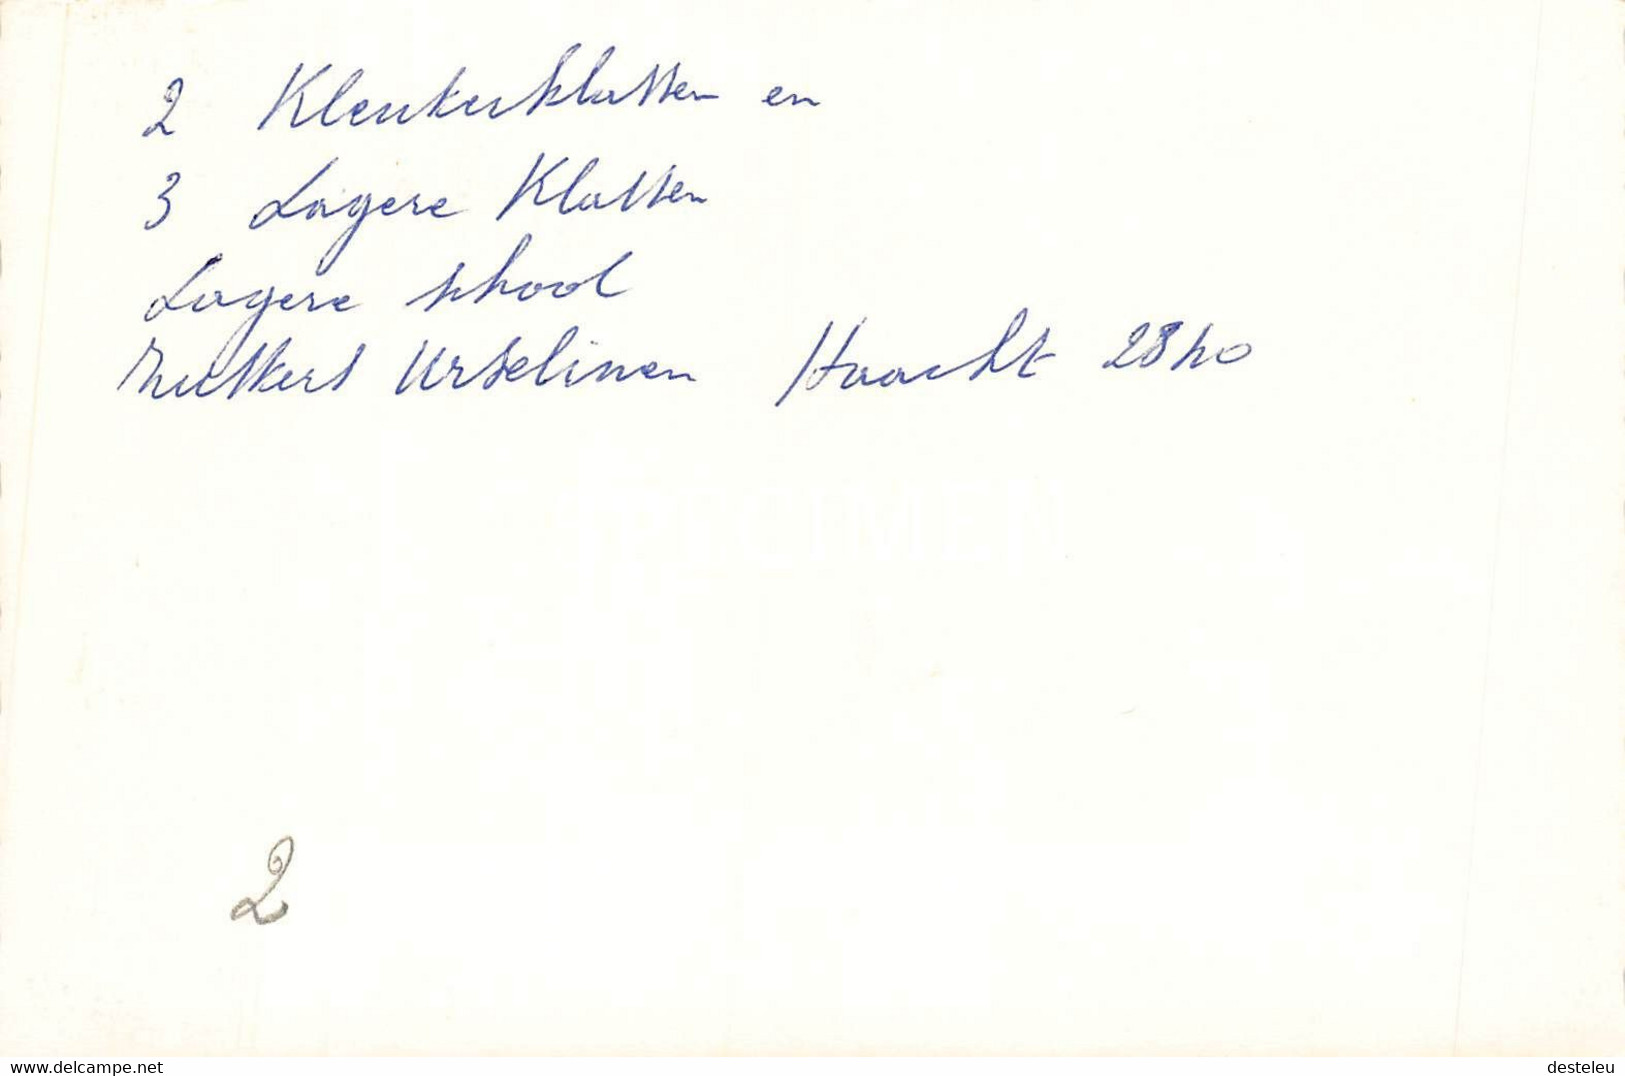 2 Kleuterklassen en
3 Lagere Klassen
Lagere school
Zusters Urselinen Haacht 2840
2
www.delcampe.net
desteleu